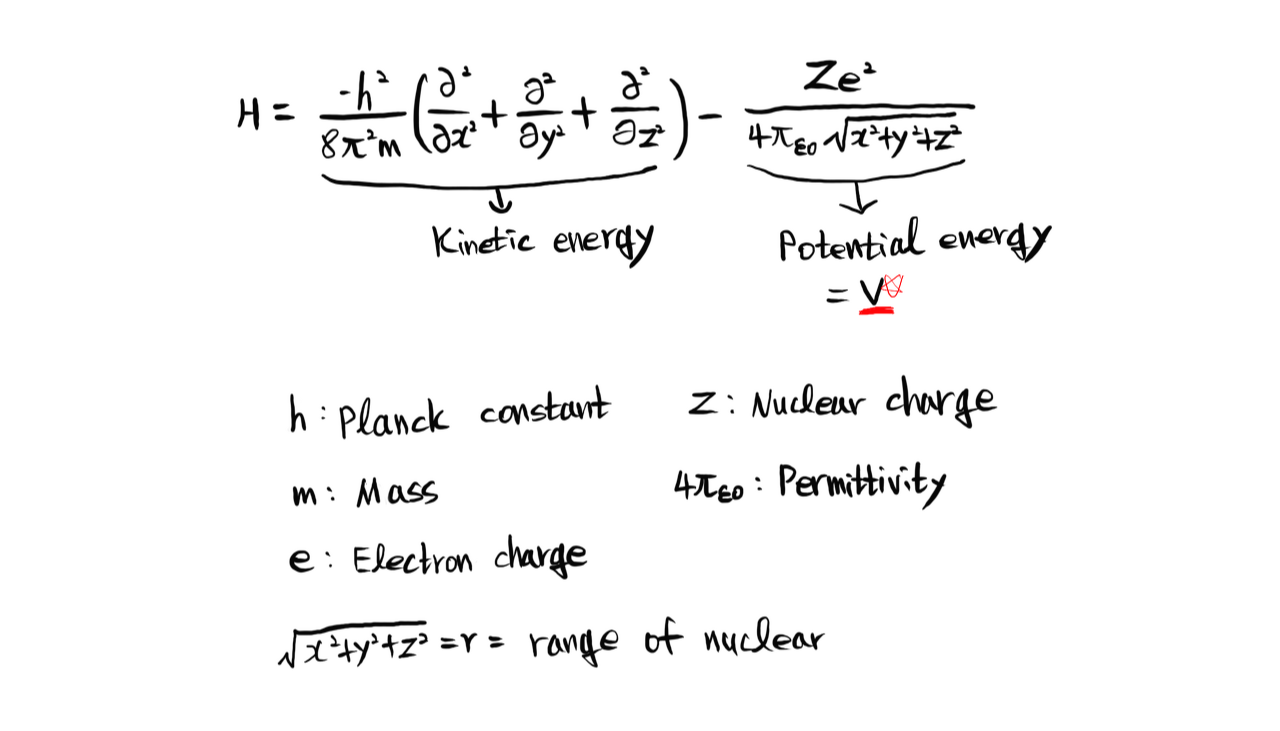 H = -h²/8π²m (∂²/∂x² + ∂²/∂y² + ∂²/∂z²) - Ze²/4πε0 √x²+y²+z²
Kinetic energy
Potential energy
= V
h : Planck constant
z : Nuclear charge
m : Mass
4πε0 : Permittivity
e : Electron charge
√x²+y²+z² = r = range of nuclear